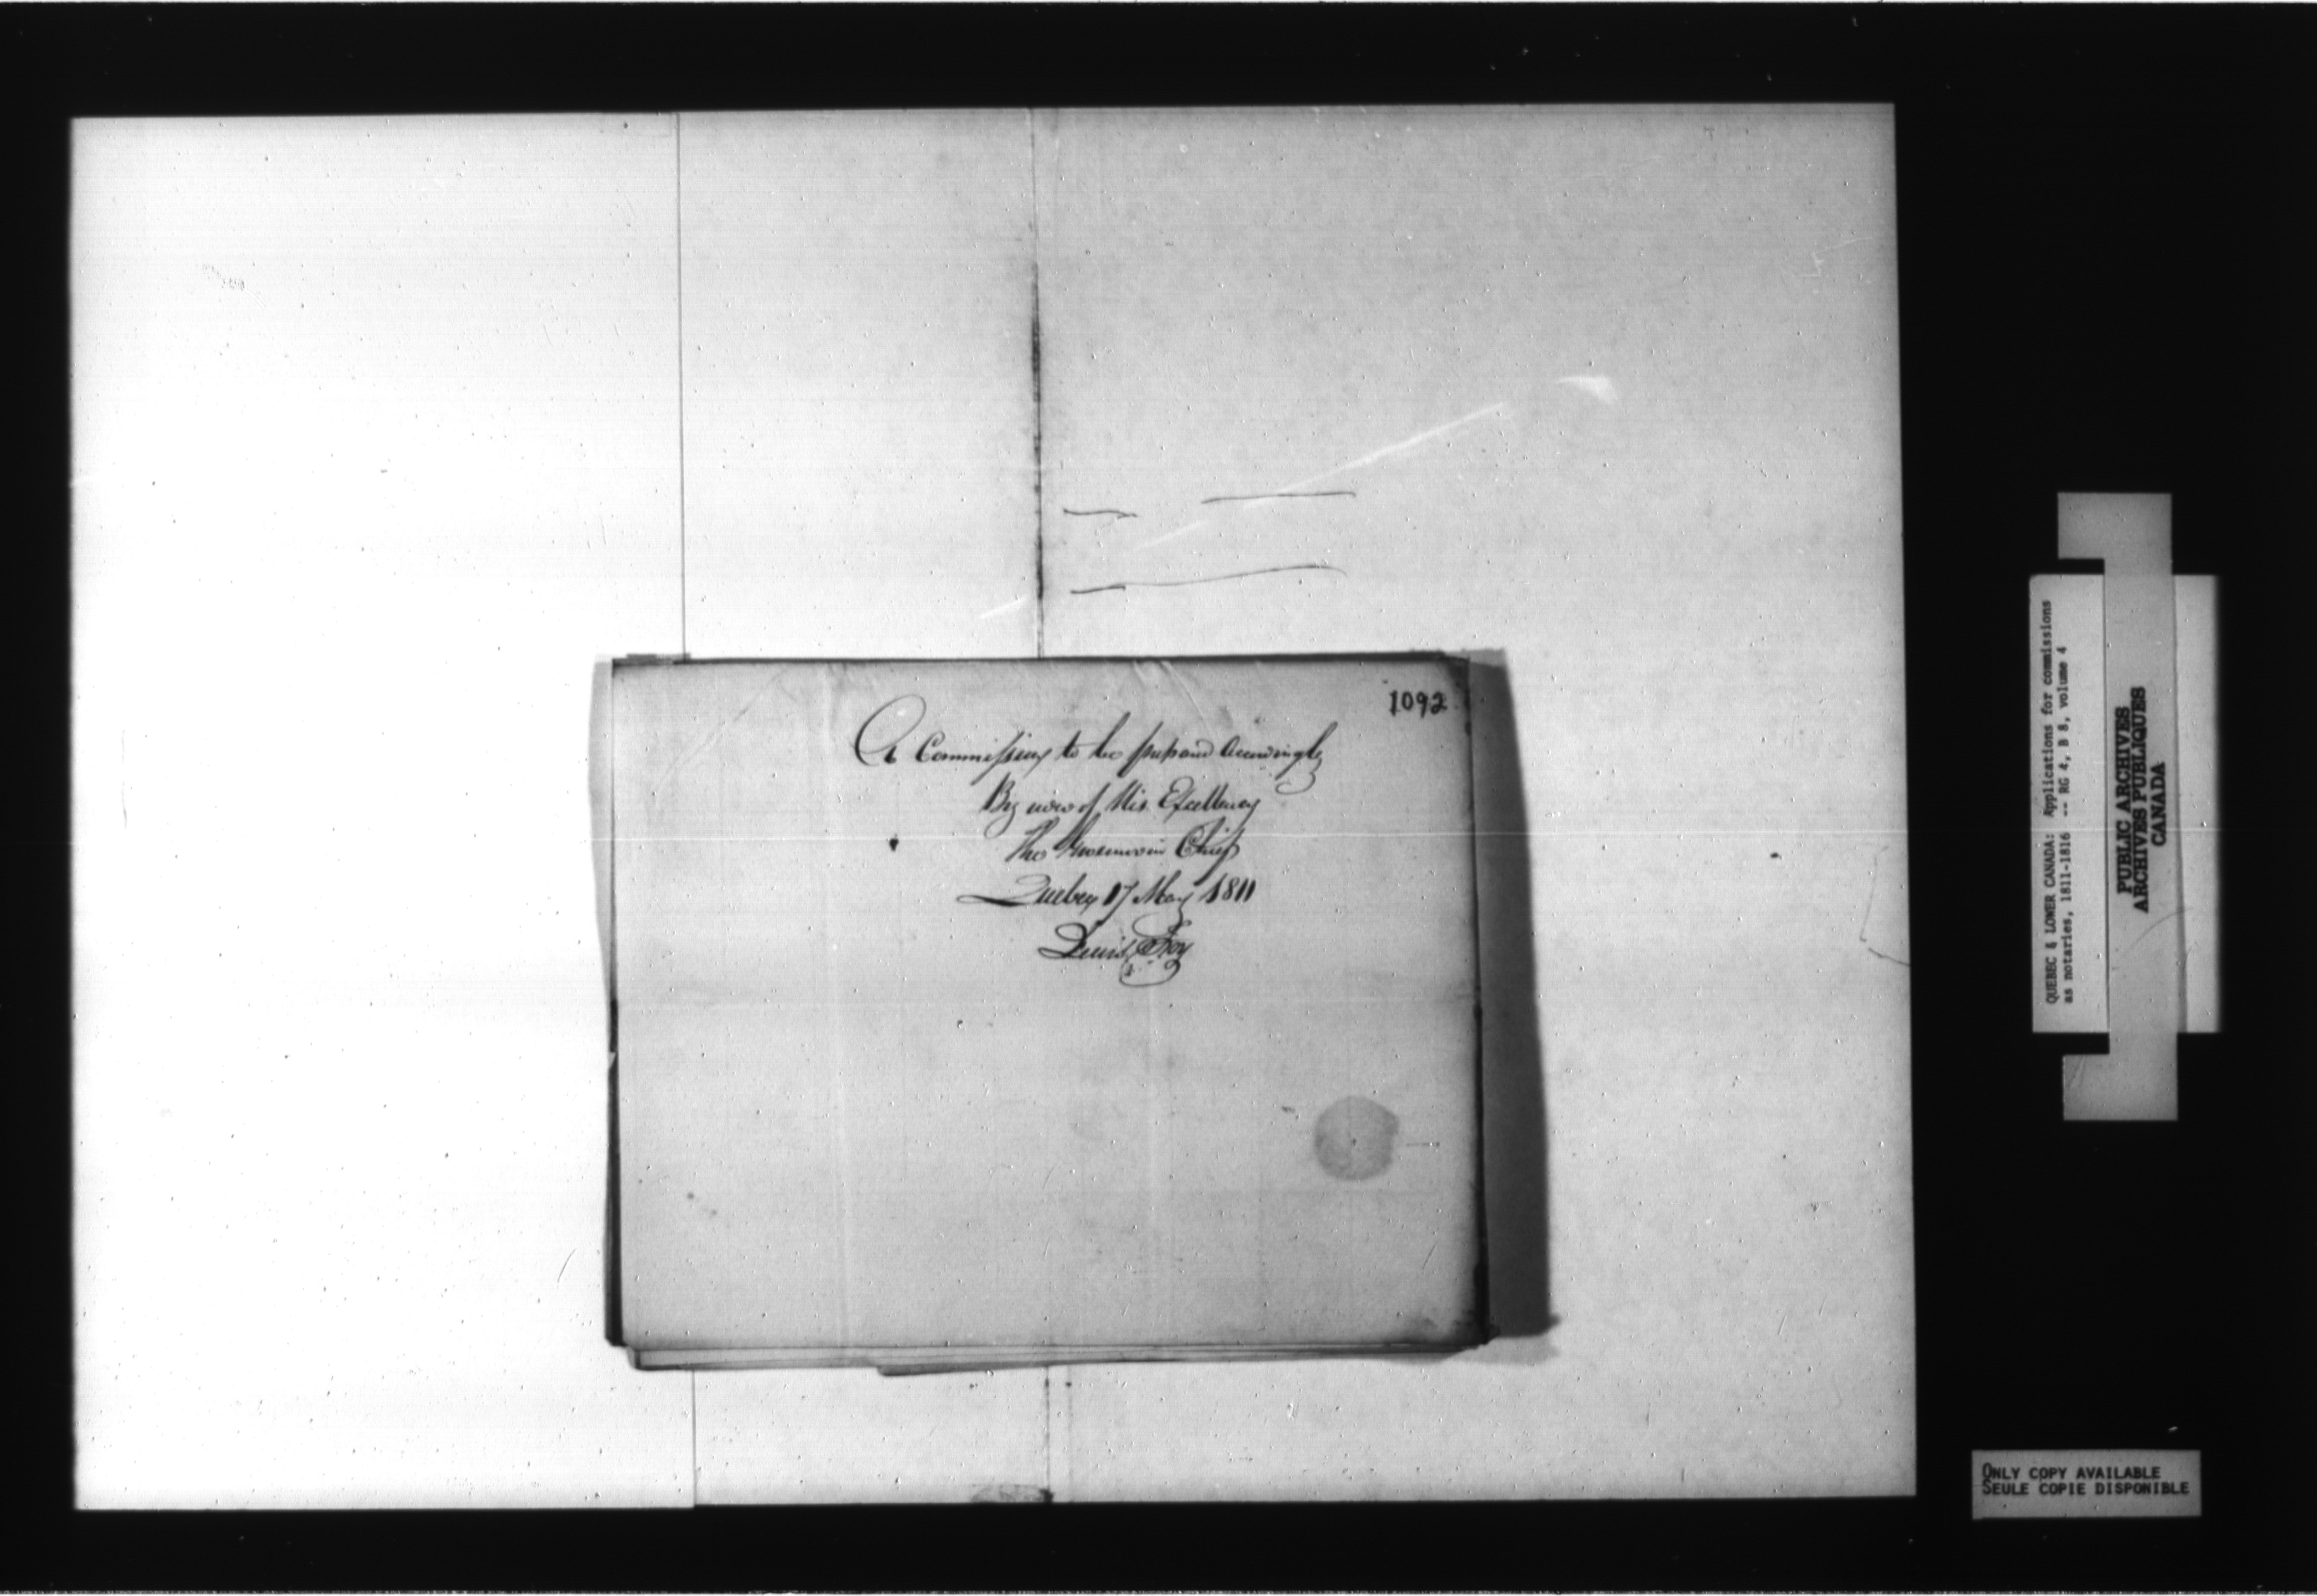 1092
A Commission to be prepared Accordingly
By order of His Excellency
The Governor in Chief
Quebec 17 May 1811
Louis Foy
QUEBEC & LOWER CANADA: Applications for commissions
as notaries, 1811-1816 -- RG 4, B 8, volume 4
PUBLIC ARCHIVES
ARCHIVES PUBLIQUES
CANADA
ONLY COPY AVAILABLE
SEULE COPIE DISPONIBLE